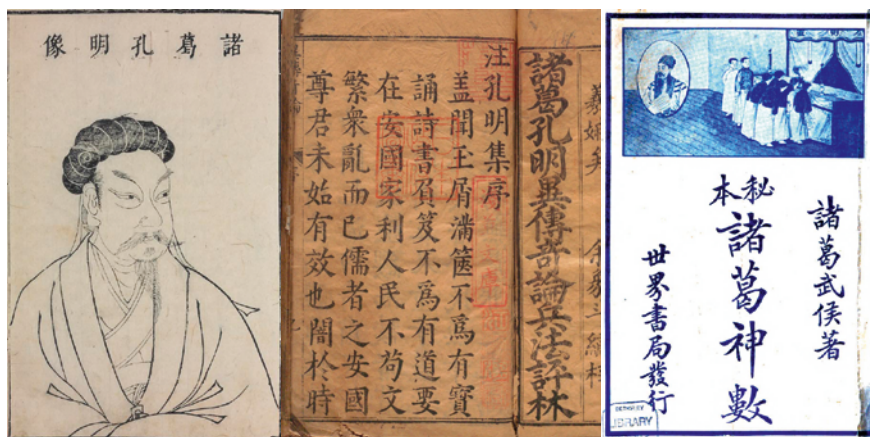 諸葛孔明像
諸葛孔明異傳奇論兵法評林
注孔明集序
盖聞玉屑滿篋不爲有寳
誦詩書貟笈不爲有道要
在安國家利人民不苟文
繁衆亂而已儒者之安國
尊君未始有效也闇於時
諸葛武侯著
秘本
諸葛神數
世界書局發行
LIBRARY